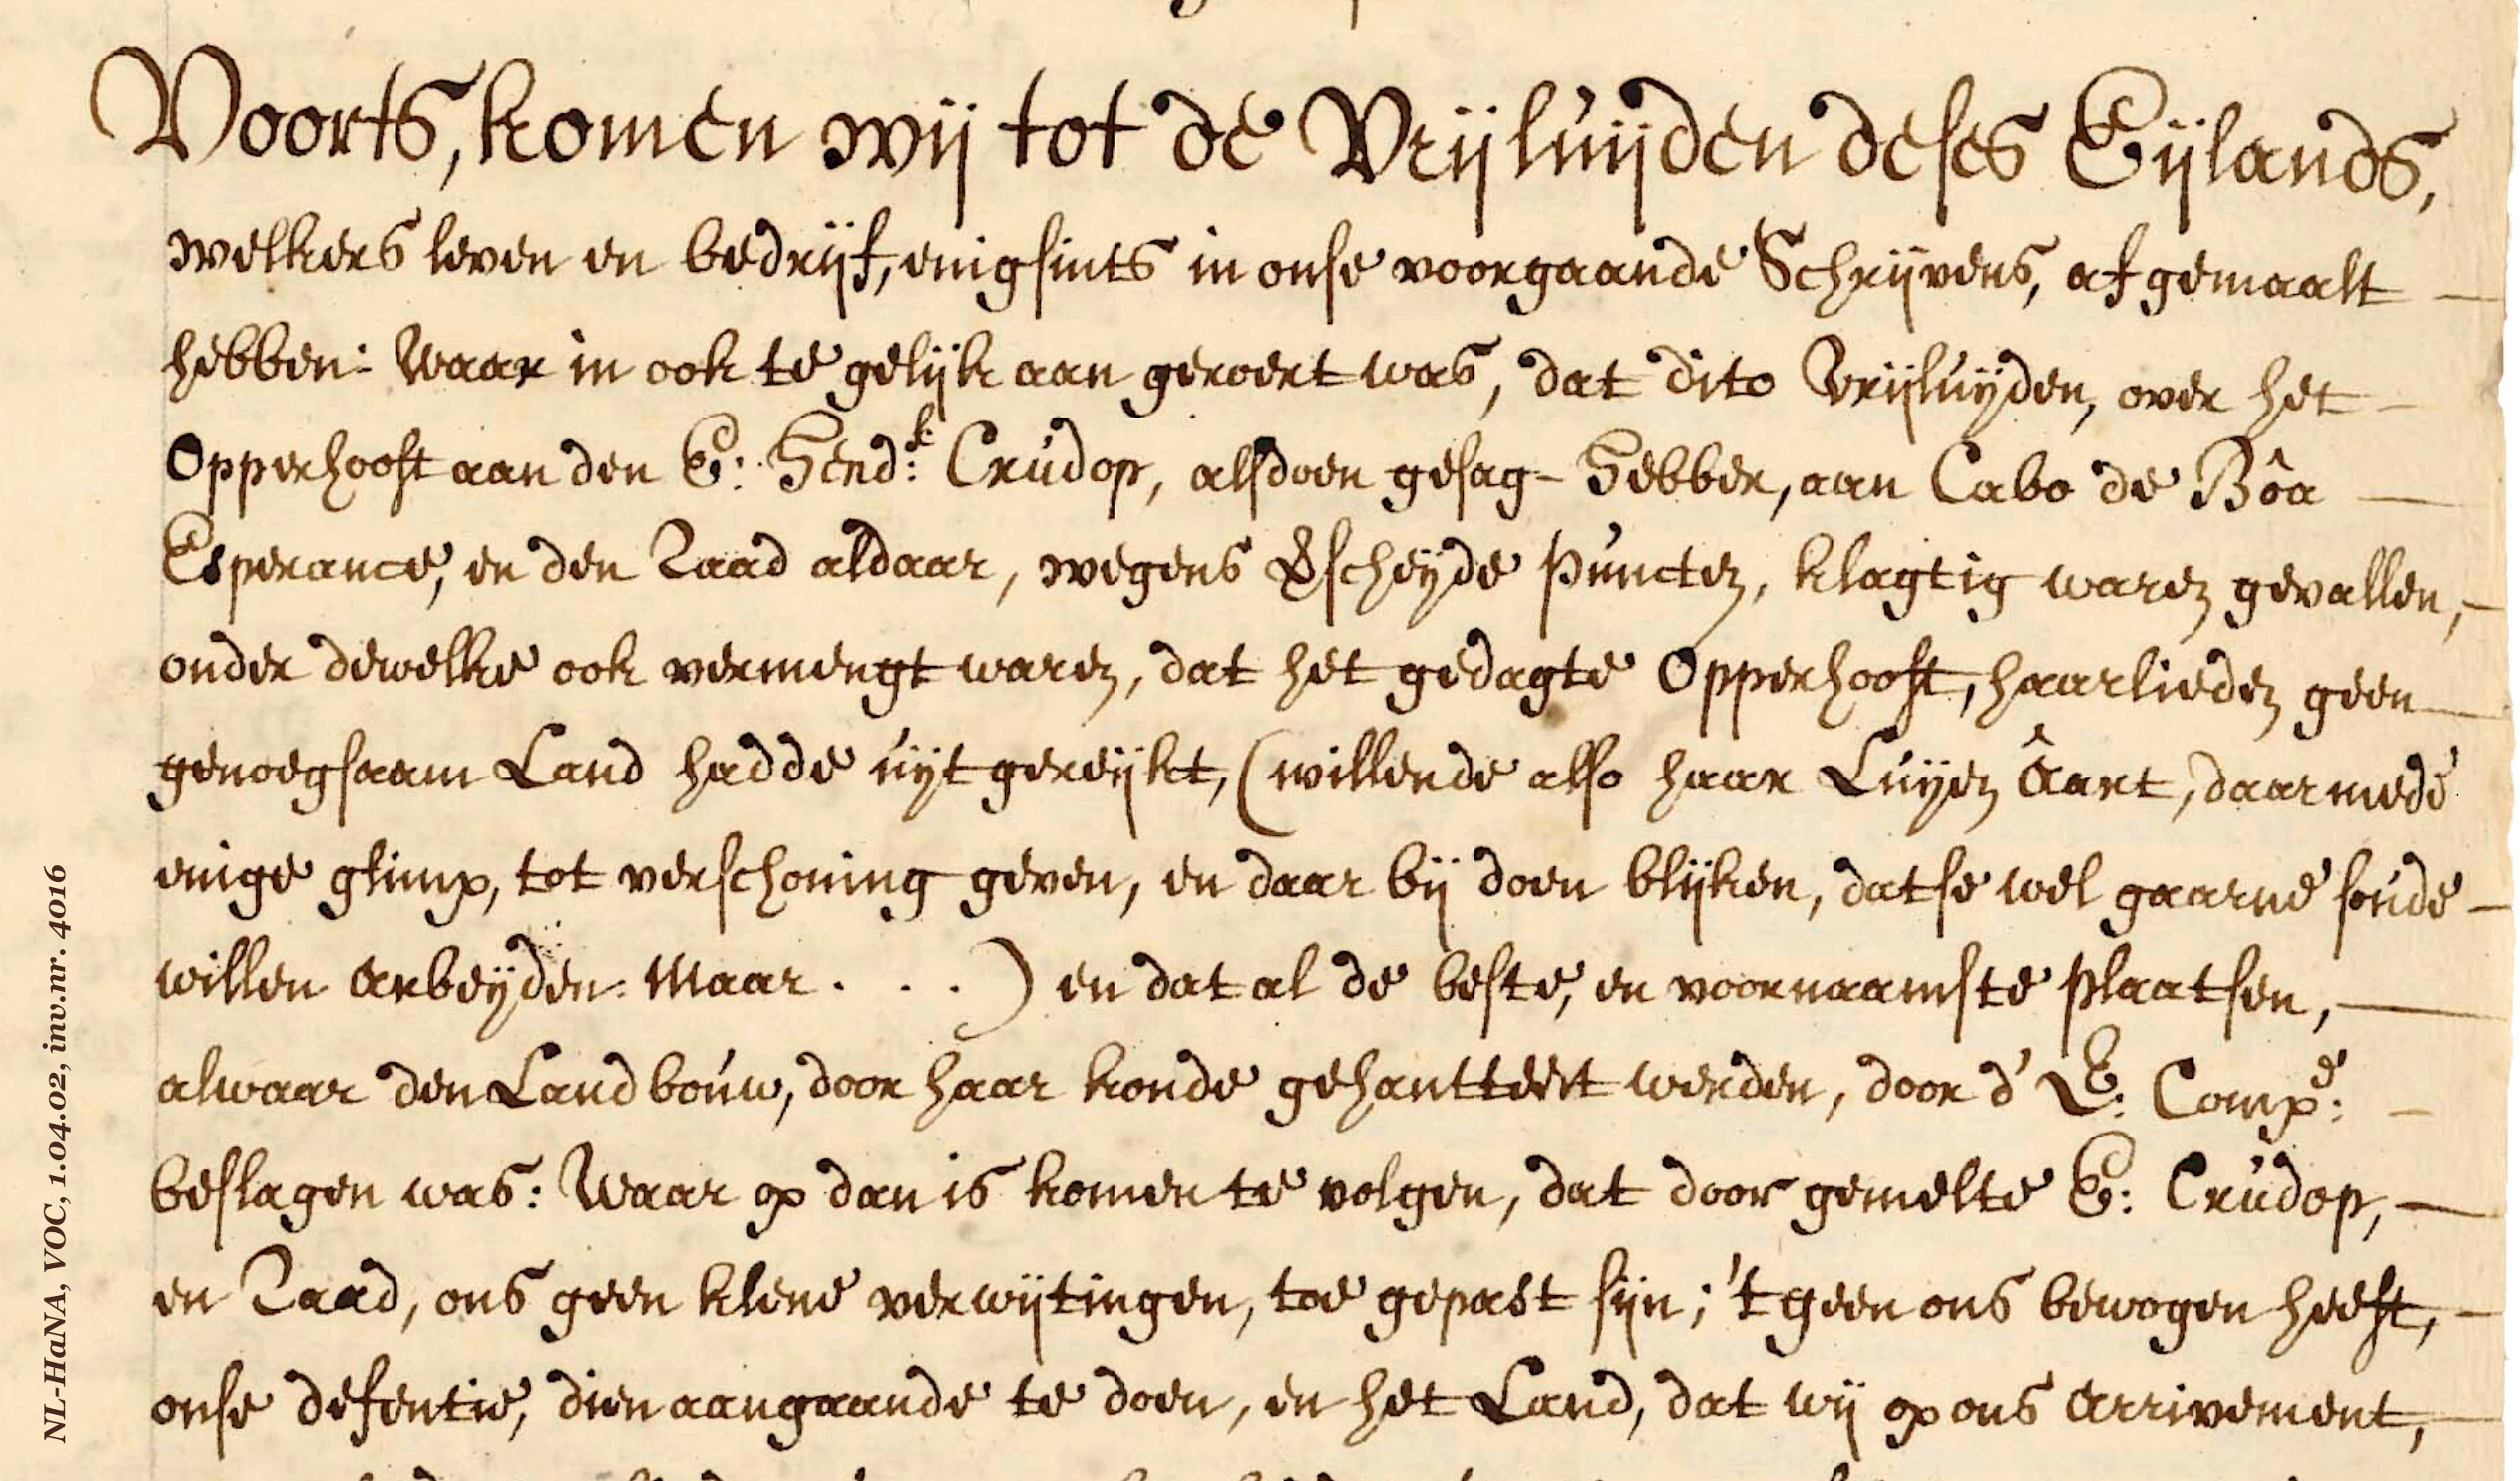 Voorts, komen wij tot de Vrijluijden deses Eijlands,
welkers leven en bedrijf, enigsints in onse voorgaande Schrijvens, af gemaalt
hebben: Waar in ook te gelijk aan geroert was, dat dito Vrijluijden, over het
Opperhooft aan den E: Hend:k Crudop, alsdoen gesag-Hebber, aan Cabo de Bôa
Esperance, en den Raad aldaar, wegens verscheijde puncten, klagtig waren gevallen,
onder dewelke ook vermengt waren, dat het gedagte Opperhooft, haarlieden geen
genoegsaam Land hadde uijt gereijkt, (willende also haar Luijen âart, daar mede
enige glimp, tot verschoning geven, en daar bij doen blijken, datse wel gaarne soude
willen arbeijden: Maar . . . ) en dat al de beste, en voornaamste plaatsen,
alwaar den Landbouw, door haar konde gehantteert werden, door d' E: Comp:e
beslagen was: Waar op dan is komen te volgen, dat door gemelte E: Crudop,
en Raad, ons geen klene verwijtingen, toe gepast sijn; 't geen ons bewogen heeft,
onse defentie, dien aangaande te doen, en het Land, dat wij op ons arrivement,
NL-HaNA, VOC, 1.04.02, inv.nr. 4016